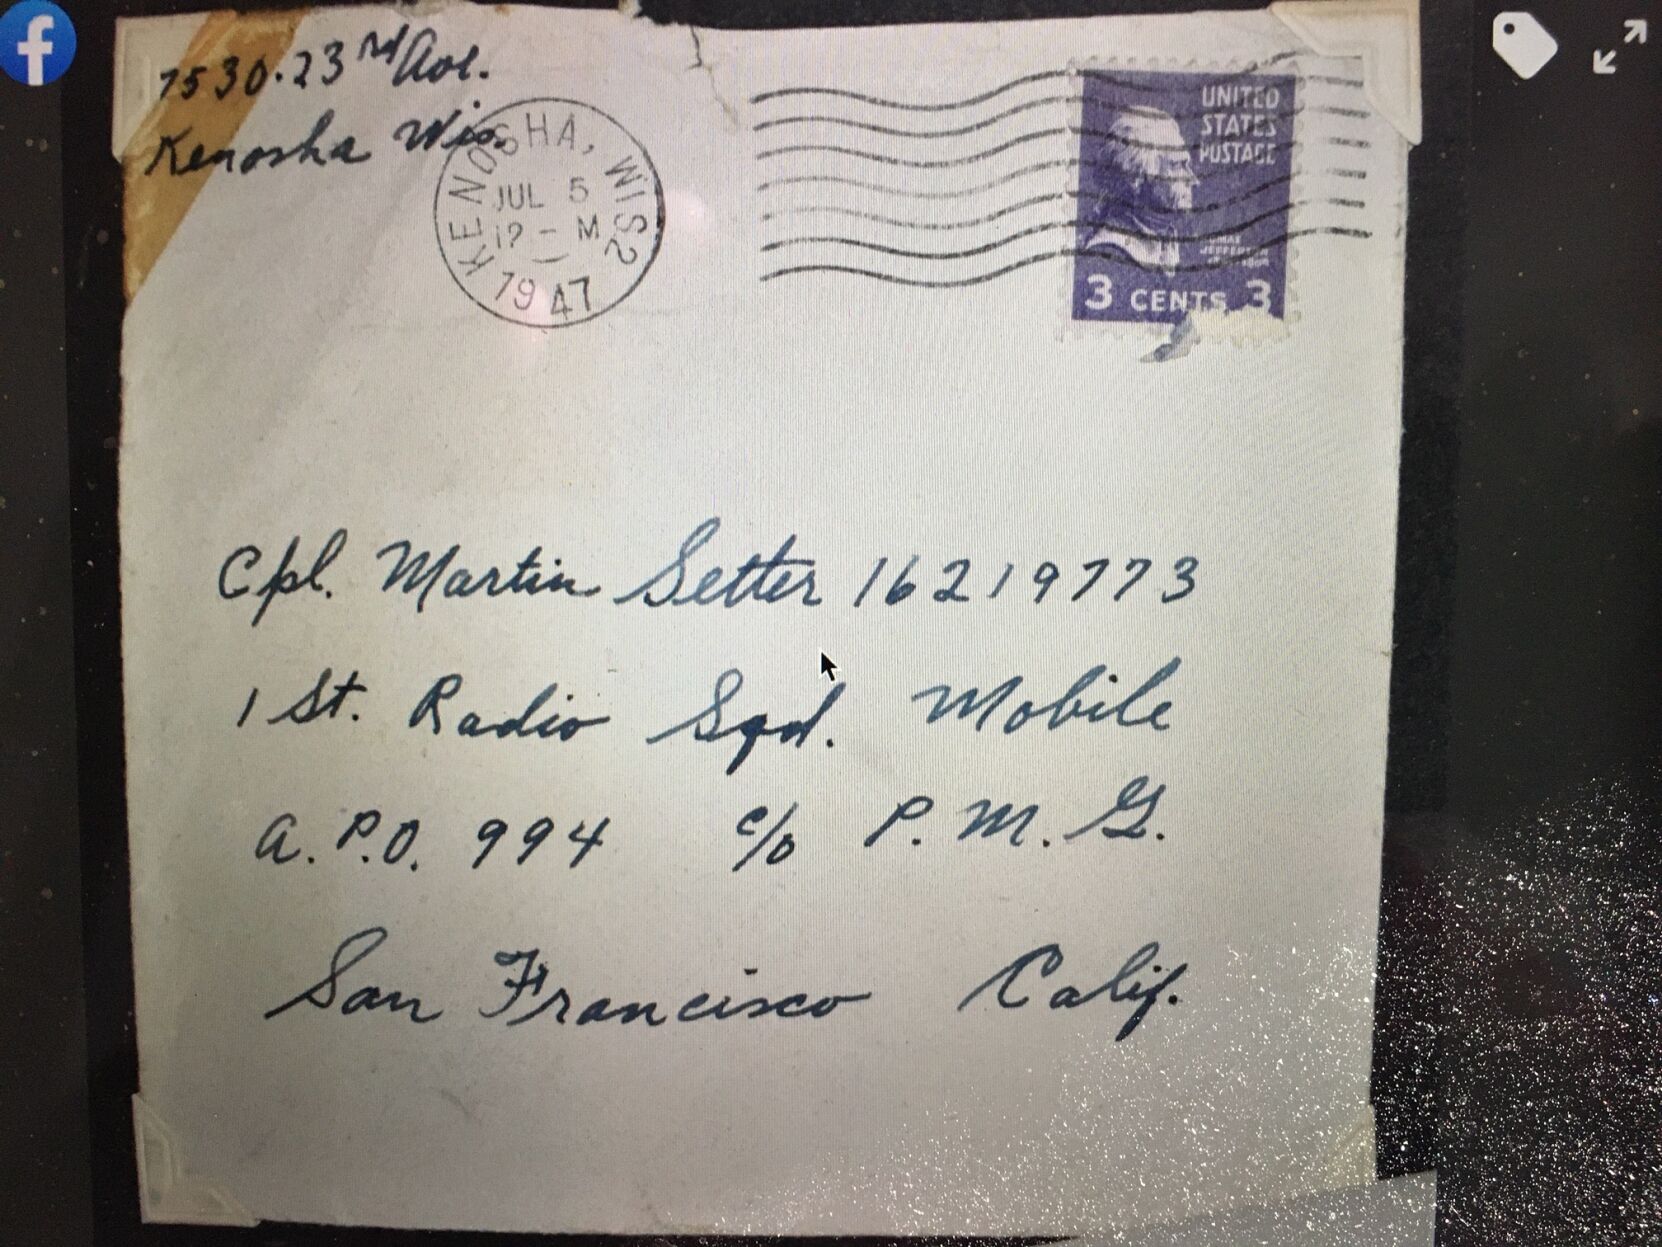 7530·23rd Ave.
Kenosha Wis.
KENOSHA, WIS2
JUL 5
12 - M
1947
UNITED
STATES
POSTAGE
THOMAS
JEFFERSON
3 CENTS 3
Cpl. Martin Setter 16219773
1 St. Radio Sqd. Mobile
A.P.O. 994 c/o P.M.G.
San Francisco Calif.